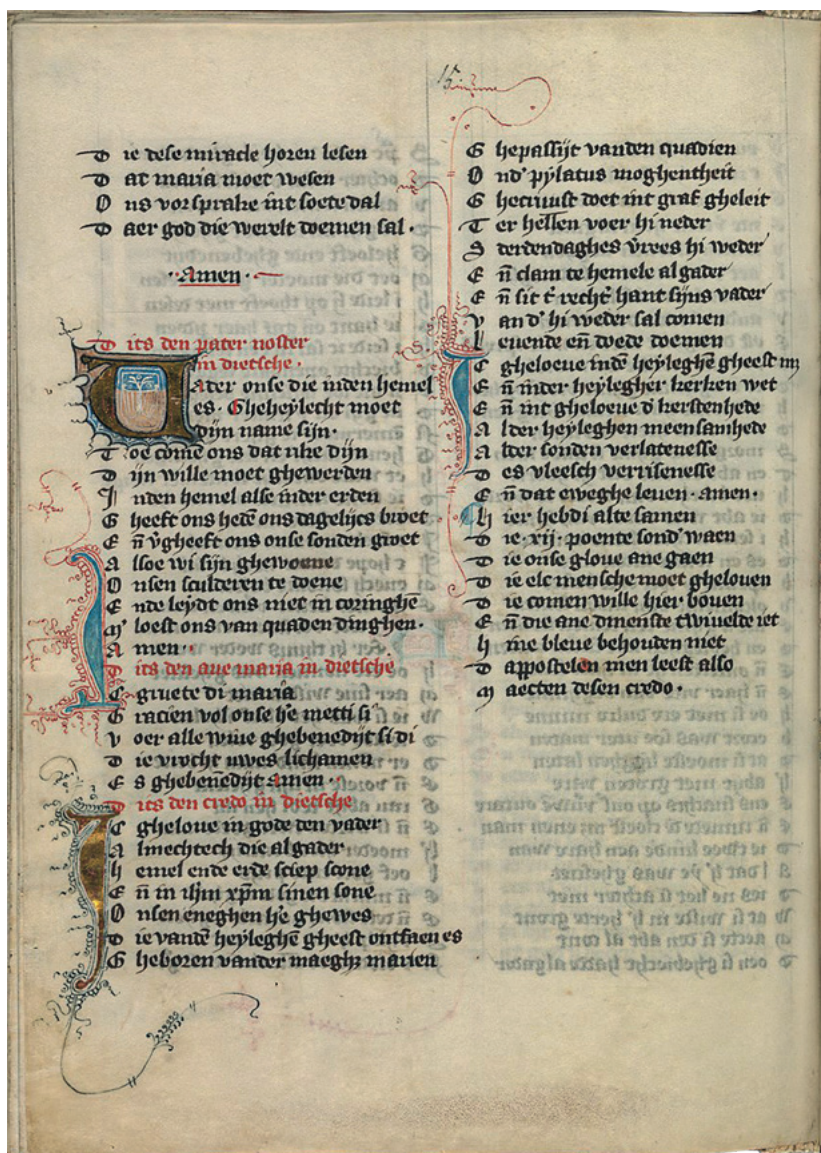 D ie dese miracle horen lesen
D at maria moet wesen
O ns vorsprake int soete dal
D aer god die werelt doemen sal·
·Amen·
D its den pater noster
in dietsche·
V ader onse die inden hemel
es· Gheheylecht moet
dijn name sijn·
T oe come ons dat rike dijn
D ijn wille moet ghewerden
I nden hemel alse inder erden
G heeft ons hedē ons dagelijcs broet
E n̄ v̄gheeft ons onse sonden groet
A lsoe wi sijn ghewoene
O nsen sculderen te doene
E nde leydt ons niet in coringhē
M loest ons van quaden dinghen·
A men·
D its den aue maria in dietsche
I c gruete di maria
G racien vol onse he metti si
V oer alle wiue ghebenedijt si di
D ie vrocht uwes lichamen
E s ghebenēdijt amen·
D its den credo in dietsche
I c gheloue in gode den vader
A lmechtech die al gader
H emel ende erde sciep scone
E n̄ in ihm xp̄m sinen sone
O nsen eneghen he ghewes
D ie vandē heyleghē gheest ontfaen es
G heboren vander maeghꝫ marien
G hepassijt vanden quadien
O nd' pylatus moghentheit
G hecruust doet int graf gheleit
T er hellen voer hi neder
S derdendaghes v̄rees hi weder
E n̄ clam te hemele al gader
E n̄ sit t' recht' hant sijns vader
V an d' hi weder sal comen
L euende en̄ doede doemen
I c gheloeue indē heyleghē gheest
E n̄ inder heylegher kerken wet
E n̄ int gheloeue d' kerstenhede
A lder heyleghen meensamhede
A lder sonden verlatenesse
D es vleesch verrisenesse
E n̄ dat eweghe leuen· amen·
H ier hebdi alte samen
D ie·xij·poente sond' waen
D ie onse gloue ane gaen
D ie elc mensche moet ghelouen
D ie comen wille hier bouen
E n̄ die ane dmenste twiuelde iet
H ine bleue behouden niet
D appostelen men leest also
M aecten desen credo·